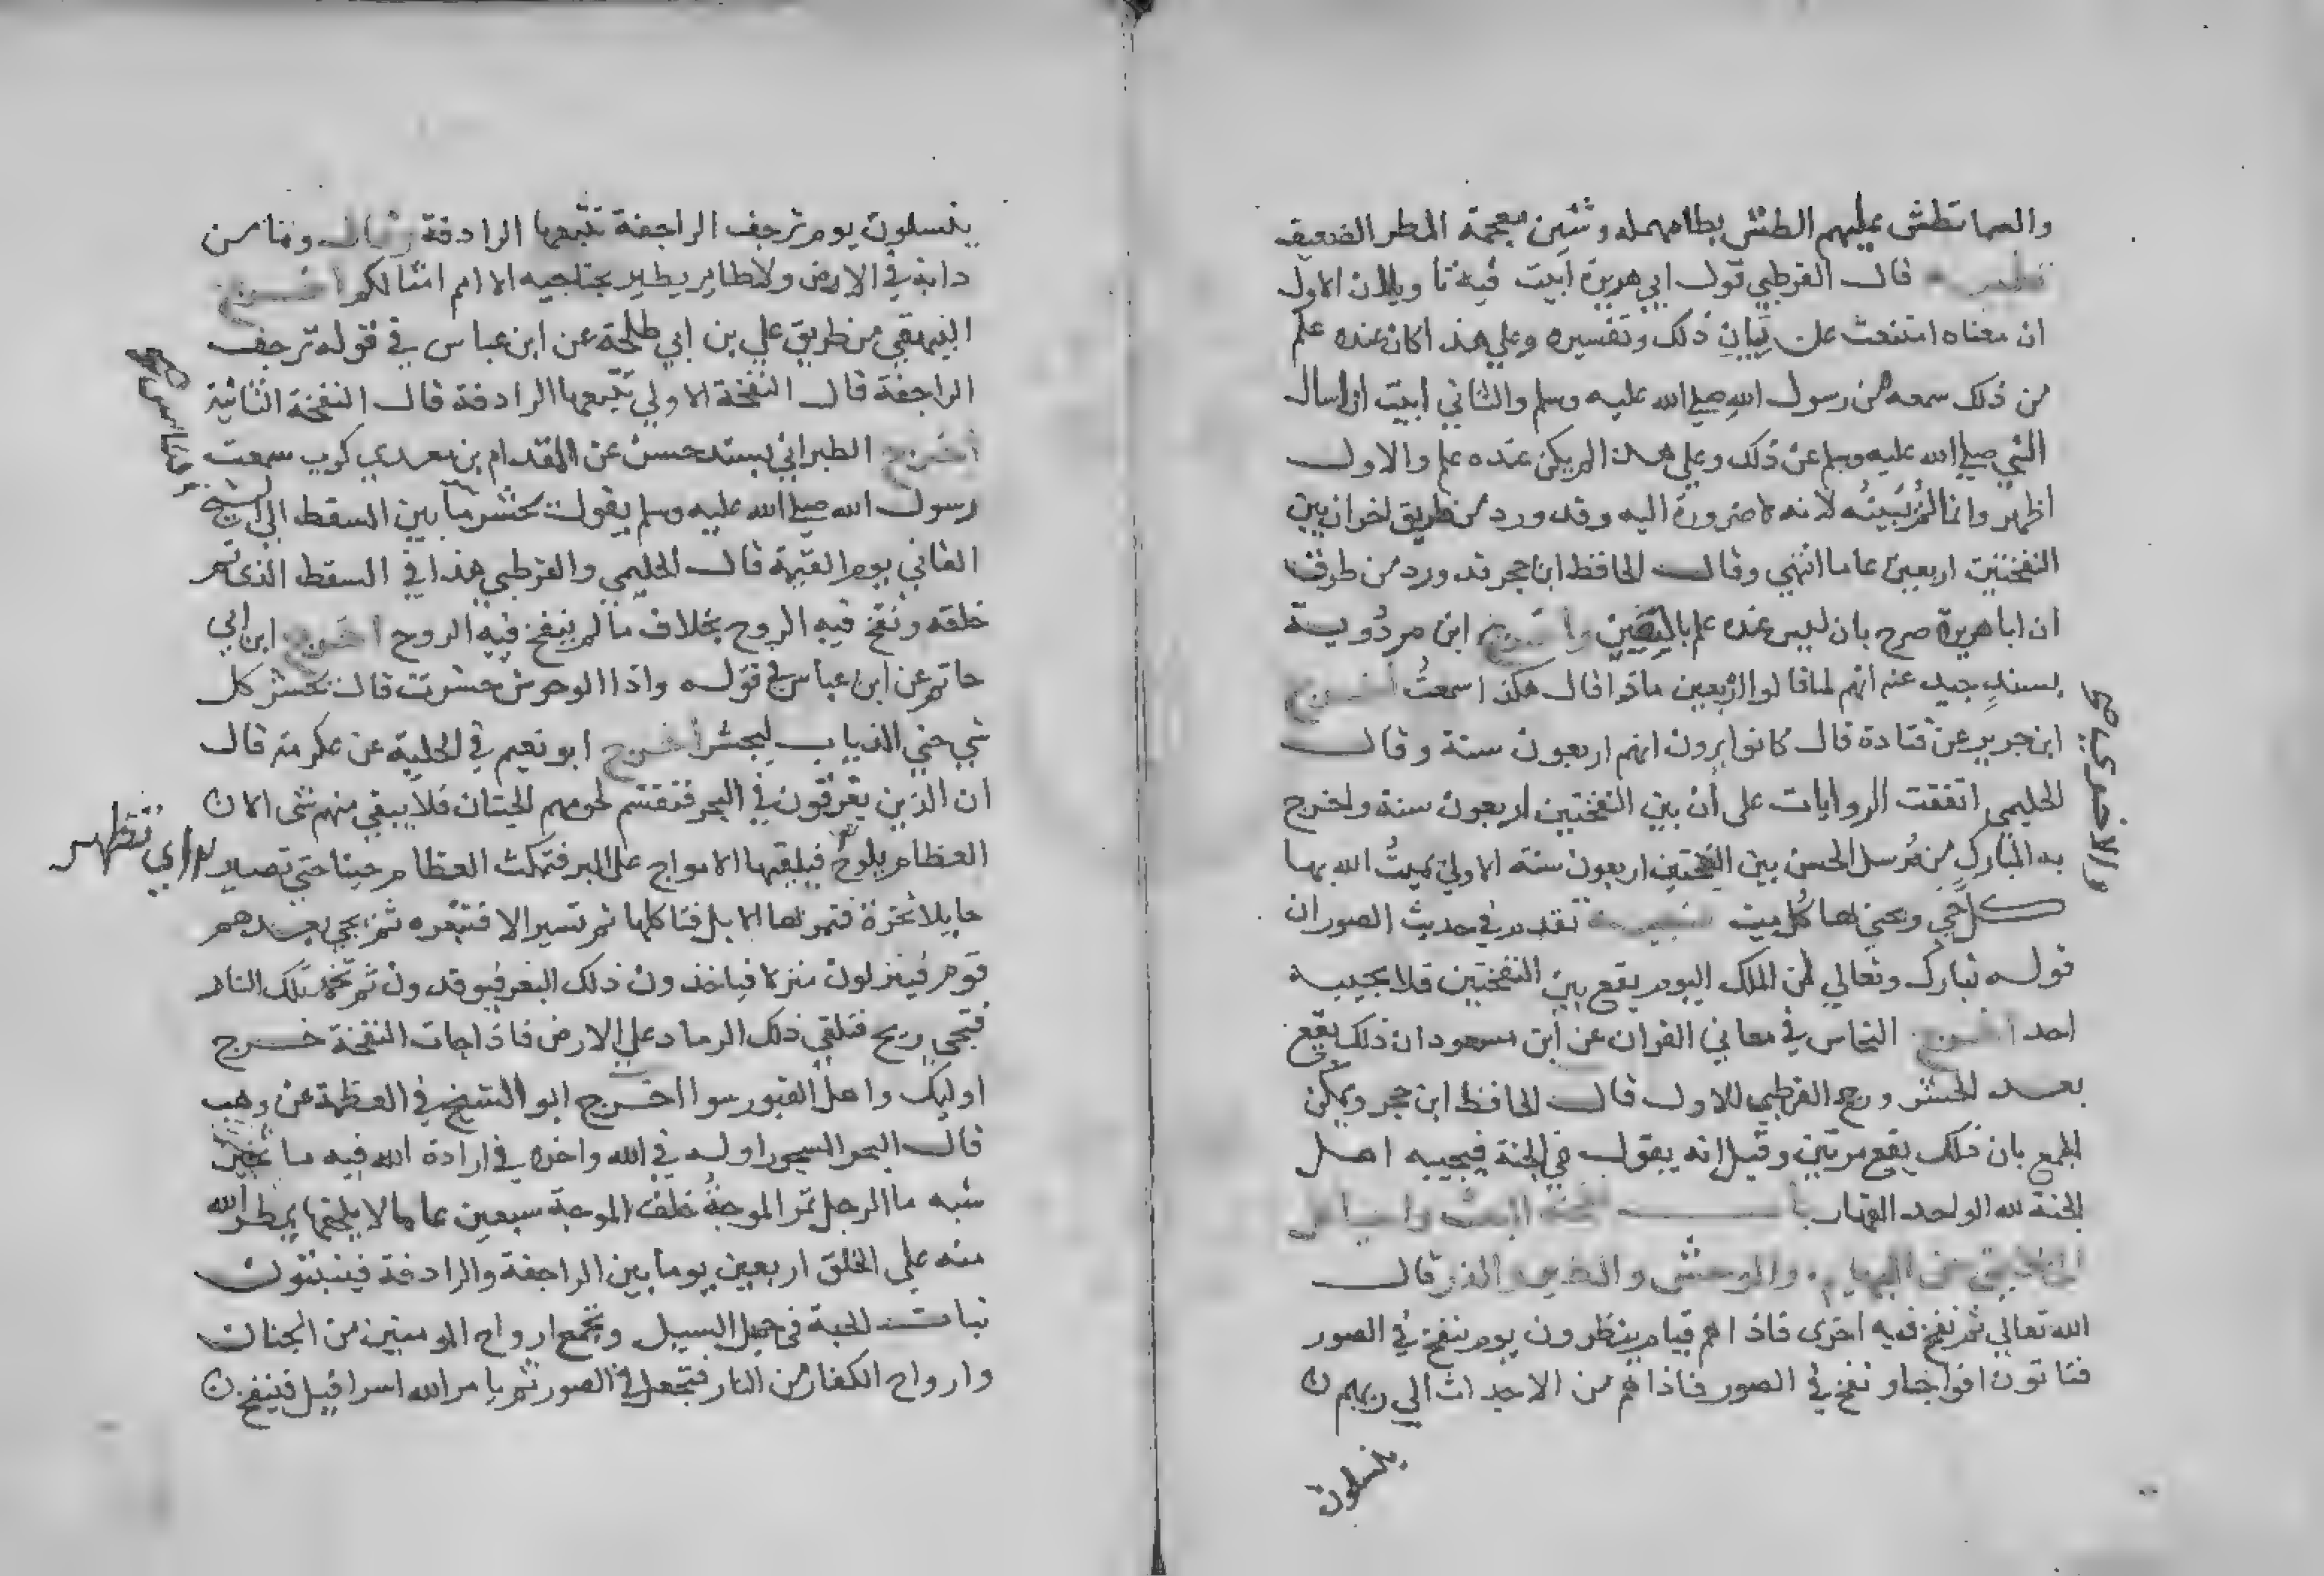 والسما تطش عليهم الطش بطا مهمله وشين معجمة المطر الضعيف
قال القرطبي قول ابي هريرة ابيت فيه تا ويلان الاول
ان معناه امتنعت عن بيان ذلك وتفسيره وعلي هذا كان عنده علم
من ذلك سمعه من رسول الله صلي الله عليه وسلم والثاني ابيت ان اسال
النبي صلي الله عليه وسلم عن ذلك وعلي هذا لم يكن عنده علم والاول
اظهر وانما لم يبينه لانه لا ضرورة اليه وقد ورد من طريق اخر ان بين
النفختين اربعين عاما انتهي وقال الحافظ ابن حجر قد ورد من طرق
ان ابا هريرة صرح بان ليس عنده علم بالتعيين واخرج ابن مردويه
بسند جيد عنه انهم لما قالوا اربعين ماذا قال هكذا سمعت اخرج
ابن جرير عن قتادة قال كانوا يرون انهم اربعون سنة وقال
الحليمي اتفقت الروايات على أن بين النفختين اربعون سنة واخرج
به المبارك من مرسل الحسن بين النفختين اربعون سنة الاولي يميت الله بها
كل حي
والاخري يحي
ويحيي بها كل ميت تنبيه تقدم في حديث الصور ان
قوله تبارك وتعالي لمن الملك اليوم يقع بين النفختين فلا يجيبه
احد اخرج النحاس في معاني القران عن ابن مسعود ان ذلك يقع
بعد الحشر ورجح القرطبي الاول قال الحافظ ابن حجر ويمكن
الجمع بان ذلك يقع مرتين وقيل انه يقول في الجنة فيجيبه اهل
الجنة لله الواحد القهار باب نفخة البعث واحيا
والوحش والطير والذر قال
الله تعالي ثم نفخ فيه اخرى فاذا هم قيام ينظرون يوم ينفخ في الصور
فتاتون افواجا ونفخ في الصور فاذا هم من الاجداث الي ربهم
ينسلون
ينسلون يوم ترجف الراجفة تتبعها الرادفة وقال وما من
دابة في الارض ولا طاير يطير بجناحيه الا امم امثالكم اخرج
البيهقي من طريق علي بن ابي طلحة عن ابن عباس في قوله ترجف
الراجفة قال النفخة الاولي تتبعها الرادفة قال النفخة الثانية
اخرج الطبراني بسند حسن عن المقدام بن معدي كرب سمعت
رسول الله صلي الله عليه وسلم يقول يحشر ما بين السقط الي الشيخ
الفاني يوم القيمة قال الحليمي والقرطبي هذا في السقط الذي تم
خلقه ونفخ فيه الروح بخلاف ما لم ينفخ فيه الروح اخرج ابن ابي
حاتم عن ابن عباس في قوله واذا الوحوش حشرت قال يحشر كل
شي حتي الذباب ليحشر اخرج ابو نعيم في الحلية عن عكرمة قال
ان الذين يغرقون في البحر فتقتسم لحومهم الحيتان فلا يبقي منهم شي الا
العظام يلوح فيلقيها الامواج على البر فتمكث العظام حينا حتي تصير
اي تظهر
حايلا نخرة فتمر بها الابل فتاكلها ثم تسير الا فتبعره ثم يجي بعدهم
قوم فينزلون منزلا فياخذون ذلك البعر فيوقدون ثم تخمد تلك النار
فتجي ريح فتلقي ذلك الرماد علي الارض فاذا جات النفخة خرج
اوليك واهل القبور سوا اخرج ابو الشيخ في العظمة عن وهب
قال البحر المسجور اوله في الله واخره في ارادة الله فيه ما
شبه ما الرجل تمر الموجة خلف الموجة سبعين عاما لا يلحقها يمطر الله
منه علي الخلق اربعين يوما بين الراجفة والرادفة فينبتون
نبات الحبة في حميل السيل ويجمع ارواح المومنين من الجنان
وارواح الكفار من النار فتجعل في الصور ثم يامر الله اسرافيل فينفخ